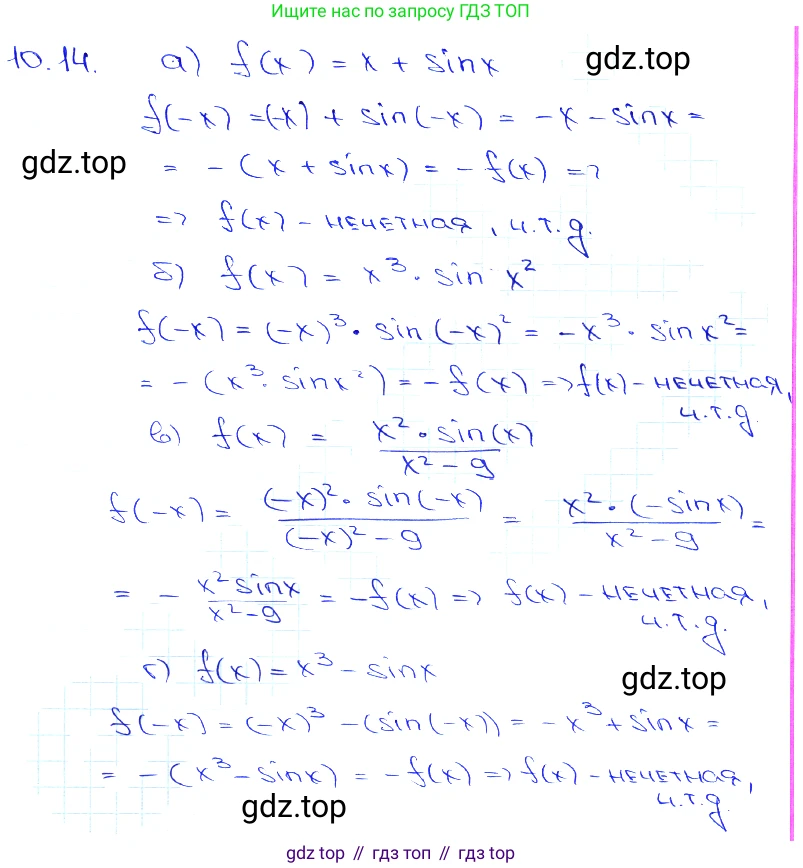 Ищите нас по запросу ГДЗ ТОП
10.14. а) f(x) = x + sinx
gdz.top
f(-x) =(-x) + sin(-x) = -x - sinx =
gdz.top
= - (x + sinx) = - f(x) =>
=> f(x) - нечетная, ч.т.д.
б) f(x) = x³ · sin x²
f(-x) = (-x)³ · sin (-x)² = -x³ · sin x² =
= - (x³ · sinx²) = - f(x) => f(x) - нечетная,
ч.т.д.
в) f(x) = x² · sin(x) / x² - 9
f(-x) = (-x)² · sin(-x) / (-x)² - 9 = x² · (-sinx) / x² - 9 =
= - x² sinx / x² - 9 = -f(x) => f(x) - нечетная,
ч.т.д.
г) f(x) = x³ - sinx
gdz.top
f(-x) = (-x)³ - (sin(-x)) = -x³ + sinx =
= - (x³ - sinx) = - f(x) => f(x) - нечетная,
ч.т.д.
gdz.top
gdz top // гдз топ // gdz top